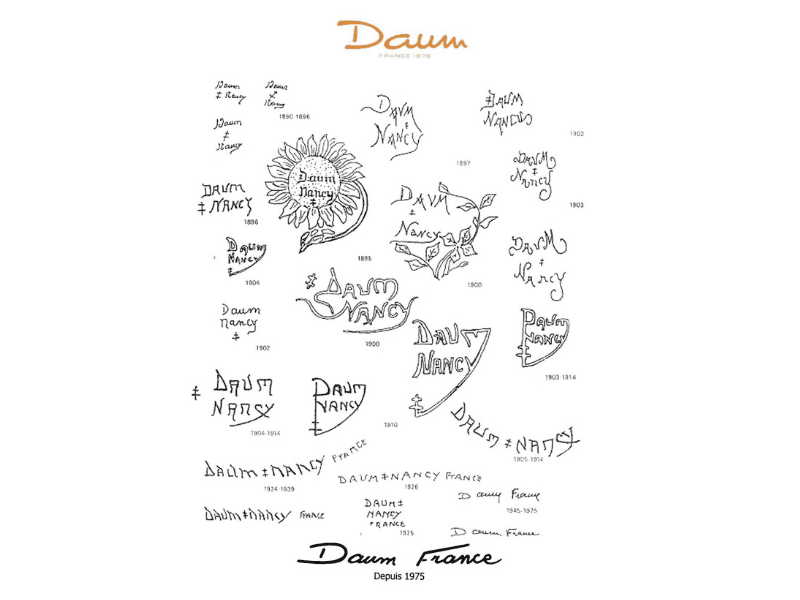 Daum
FRANCE 1878
Daum
‡ Nancy
Daum
‡
Nancy
1890-1896
Daum
‡
Nancy
DAUM
‡
NANCY
1897
DAUM
NANCY
1902
DAUM
‡ NANCY
1896
Daum
Nancy
‡
1895
DAUM
‡
Nancy
1900
DAUM
‡
NANCY
1903
DAUM
NANCY
‡
1904
DAUM
‡
NANCY
Daum
nancy
‡
1902
‡ DAUM
NANCY
1900
DAUM
NANCY
‡
DAUM
NANCY
‡
1903-1914
‡ DAUM
NANCY
1904-1914
DAUM
NANCY
‡
1910
DAUM ‡ NANCY
1905-1914
DAUM ‡ NANCY FRANCE
1924-1939
DAUM ‡ NANCY FRANCE
1926
Daum France
1945-1975
DAUM ‡ NANCY FRANCE
DAUM ‡
NANCY
FRANCE
1925
Daum France
Daum France
Depuis 1975